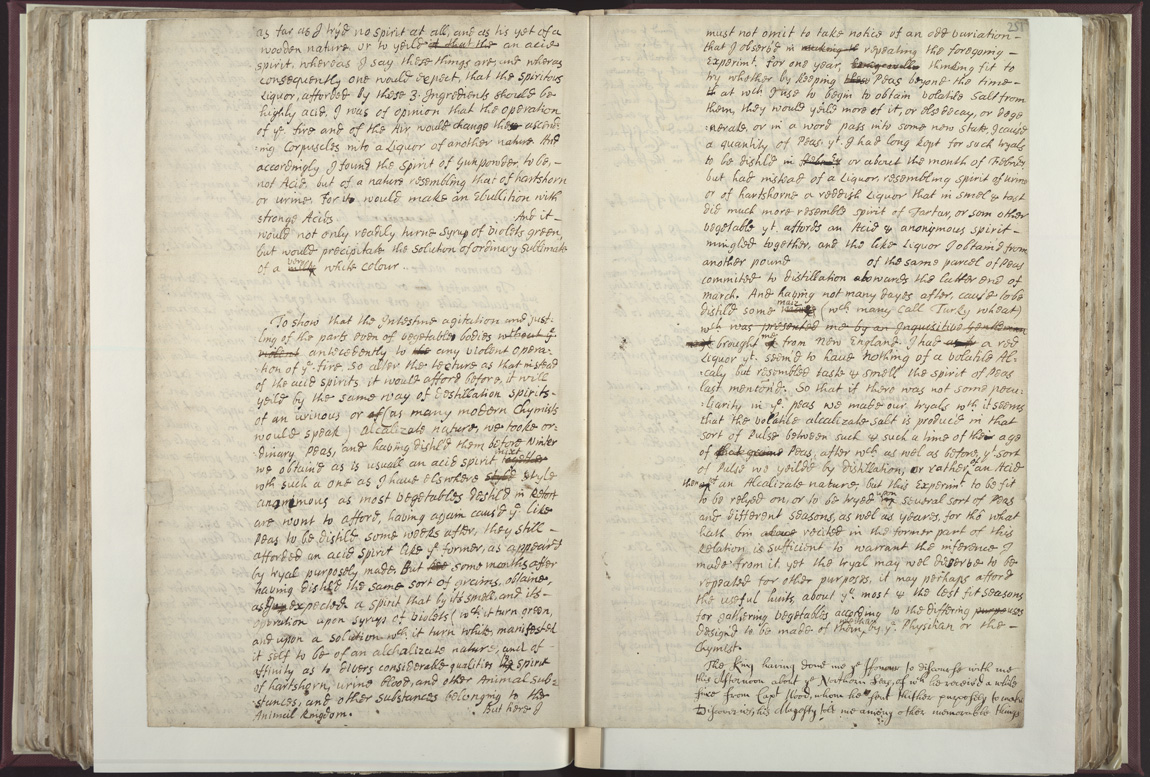 as far as I try'd no spirit at all, and as tis yet of a
wooden nature, or to yeild if that the an acid
spirit. whereas I say these things are, and wheras
consequently one would expect, that the spiritous
Liquor, afforded by these 3: Ingredients should be
highly acid, I was of opinion that the operation
of ye fire and of the Air would change the ascen-
ing Corpuscles into a Liquor of another nature And
accordingly I found the Spirit of Gunpowder, to be, -
not Acid, but of a nature resembling that of hartshorn
or urine. for it would make an ebullition with
strong Acids And it -
would not only readily turne Syrup of violets green,
but would precipitate the solution of ordinary sublimate
of a very white colour ..
To show that the Intestine agitation and just-
ling of the parts even of vegetable bodies without ye
violent antecedently to the any violent opera-
tion of ye fire, so alter the texture as that instead
of the acid spirits it would afford before, it will
yeild by the same way of Destillation spirits -
of an urinous or of (as many modern Chymists
would speak) Alcalizate nature, we tooke or-
dinary Peas, and having distill'd them before Winter
we obtained as is usuall an acid spirit mixt together
wth such a one as I have elswhere style style
anonimous as most vegetables destild in Retort
are wont to afford, having again caus'd ye like
Peas to be distild some weeks after, they still -
afforded an acid spirit like ye former, as appeard
by tryal purposely made. But some months after
having distild the same sort of graines, obtaine,
as I expected a spirit that by its smell, and its -
operation upon syrup of violets (wch it turn green,
and upon a solution wch it turn white, manifested
it self to be of an alchalizate nature, and of
ffinity as to divers considerable qualities to spirit
of hartshorn, urine blood, and other Animal sub-
stances, and other substances belonging to the
Animal kingdom. But here I
251
must not omit to take notice of an odd variation -
that I observ'd in making ye repeating the foregoing -
Experimt. for one year, thinking fit to
try whether by keeping these Peas beyond the time -
at wch I use to begin to obtain volatile Salt from
them, they would yeild more of it, or els decay, or dege
:nerate, or in a word pass into some new state, I caus'd
a quantity of Peas yt. I had long kept for such tryals
to be distild in or about the month of Febru
but had instead of a Liquor resembling spirit of urin
or of hartshorne a reddish Liquor that in smel & tast
did much more resemble spirit of Tartar, or som other
vegetable yt. affords an Acid & anonymous spirit -
mingled together, and the like Liquor I obtaind from
another pound of the same parcel of Peas
commited to distillation towards the latter end of
march. And having not many dayes after, caus'd to be
distild some maiz (wch many Call Turky wheat)
wch was presented me by an Inquisitive Gentleman
brought me from New England. I had a red
Liquor yt. seem'd to have nothing of a volatile Al-
caly but resembled taste & smell the spirit of Peas
last mention'd. So that if there was not some pecu
:liarity in ye peas we made our tryals wth it seems
that the volatile alcalizate salt is produc'd in that
sort of Pulse between such & such a time of their age
of Peas, after wch as wel as before, ye sort
of Pulse wo yeilde by distillation, or rather, an Acid
then of an Alcalizate nature, but this Experimt to be fit
to be relyed on, or to be tryed upon several sort of Peas
and different seasons, as wel as yeares, for tho what
hath bin above recited in the former part of this
Relation is sufficient to warrant the inference I
made from it, yet the tryal may wel deserve to be
repeated for other purposes, it may perhaps afford
the useful hints, about ye most & the lest fit seasons
for gathering vegetables according to the differing purposes
design'd to be made of them, by ye Physitian or the -
Chymist.
The King having done me ye Honour to discourse with me
this Afternoon about ye Northern Seas, of wch he receiv'd a while
since from Capt Wood, whom he sent thither purposely to make
Discoveries, his Magesty told me among other memorable things